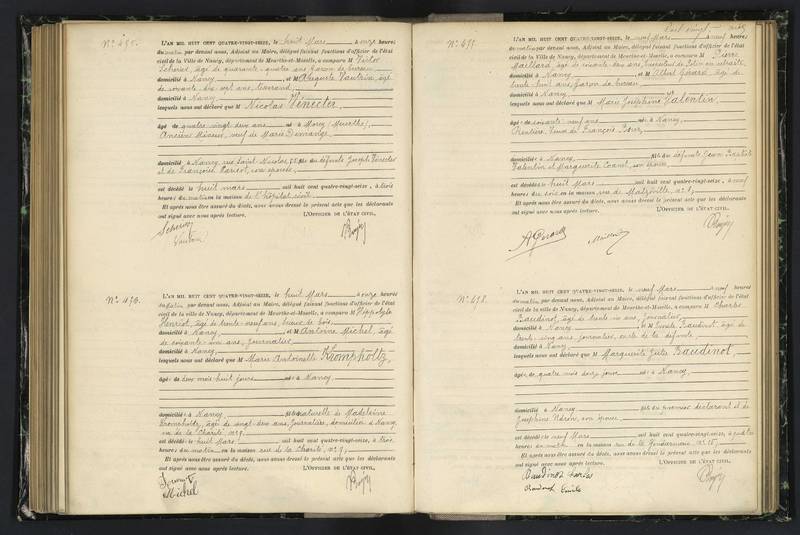 N° 495.
L'AN MIL HUIT CENT QUATRE-VINGT-SEIZE, le huit Mars à onze heures
du matin par devant nous, Adjoint au Maire, délégué faisant fonctions d'officier de l'état
civil de la Ville de Nancy, département de Meurthe-et-Moselle, a comparu M Victor
âgé de quarante-quatre ans garçon de bureau
domicilié à Nancy et M Auguste Vautrin, âgé
de soixante-dix-sept ans,
domicilié à Nancy
lesquels nous ont déclaré que M Nicolas Vénecter
âgé de quatre-vingt-deux ans né à (Meurthe),
Ancien Mineur, veuf de Marie Demange
domicilié à Nancy, rue Saint Nicolas, fils de défunts Joseph Vénecter
et de Françoise son épouse
est décédé le huit mars mil huit cent quatre-vingt-seize, à trois
heures du matin en la maison de l'hôpital civil
Et après nous être assuré du décès, nous avons dressé le présent acte que les déclarants
ont signé avec nous après lecture. L'OFFICIER DE L'ÉTAT CIVIL,
Vautrin
N° 496.
L'AN MIL HUIT CENT QUATRE-VINGT-SEIZE, le huit Mars à onze heures
du matin par devant nous, Adjoint au Maire, délégué faisant fonctions d'officier de l'état
civil de la ville de Nancy, département de Meurthe-et-Moselle, a comparu M Hippolyte
Henriot, âgé de trente-neuf ans, de bois
domicilié à Nancy et M Antoine Michel, âgé
de soixante-un ans, journalier
domicilié à Nancy
lesquels nous ont déclaré que M Marie Antoinette Kromphöltz,
âgée de deux mois huit jours née à Nancy
domiciliée à Nancy fille naturelle de Madeleine
Kromphöltz, âgée de vingt-deux ans, journalière, domiciliée à Nancy
rue de la Charité, n° 9
est décédée le huit Mars mil huit cent quatre-vingt-seize, à trois
heures du matin en la maison rue de la Charité, n° 9
Et après nous être assuré du décès, nous avons dressé le présent acte que les déclarants
ont signé avec nous après lecture. L'OFFICIER DE L'ÉTAT CIVIL,
Michel
N° 497.
L'AN MIL HUIT CENT QUATRE-VINGT-SEIZE, le neuf Mars à neuf heures
du matin par devant nous, Adjoint au Maire, délégué faisant fonctions d'officier de l'état
civil de la Ville de Nancy, département de Meurthe-et-Moselle, a comparu M Pierre
Vaillard, âgé de soixante-dix ans, en retraite
domicilié à Nancy et M Albert Gérard, âgé de
trente-huit ans, garçon de bureau
domicilié à Nancy
lesquels nous ont déclaré que M Marie Joséphine Valentin,
âgée de soixante-neuf ans née à Nancy,
Rentière, Veuve de François
domiciliée à Nancy fille de défunts Jean Baptiste
Valentin et Marguerite son épouse
est décédée le huit Mars mil huit cent quatre-vingt-seize, à neuf
heures du soir en la maison rue de Malzéville, n° 8
Et après nous être assuré du décès, nous avons dressé le présent acte que les déclarants
ont signé avec nous après lecture. L'OFFICIER DE L'ÉTAT CIVIL,
A Gérard
N° 498.
L'AN MIL HUIT CENT QUATRE-VINGT-SEIZE, le neuf Mars à neuf heures
du matin par devant nous, Adjoint au Maire, délégué faisant fonctions d'officier de l'état
civil de la ville de Nancy, département de Meurthe-et-Moselle, a comparu M Charles
Baudinot, âgé de trente-six ans, journalier
domicilié à Nancy et M Emile Baudinot, âgé de
trente-cinq ans, journalier, oncle de la défunte
domicilié à Nancy
lesquels nous ont déclaré que M Marguerite Baudinot,
âgée de quatre mois dix jours née à Nancy,
domiciliée à Nancy fille du premier déclarant et de
Joséphine son épouse
est décédée le neuf Mars mil huit cent quatre-vingt-seize, à quatre
heures du matin en la maison rue de la Gendarmerie n° 15
Et après nous être assuré du décès, nous avons dressé le présent acte que les déclarants
ont signé avec nous après lecture. L'OFFICIER DE L'ÉTAT CIVIL,
Baudinot Charles
Baudinot Emile